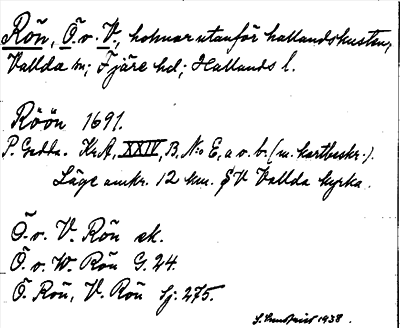 Rön, Ö. o. V., holmar utanför hallandskusten,
Vallda sn; Fjäre hd; Hallands l.
Röön 1691.
P. Gedda. KrA, XXIV, B. N:o E, a o. b. (m. kartbeskr.).
Läge omkr. 12 km. SV Vallda kyrka.
Ö. o. V. Rön ek.
Ö. o. W. Rön G. 24.
Ö. Rön, V. Rön Sj. 275.
1938.